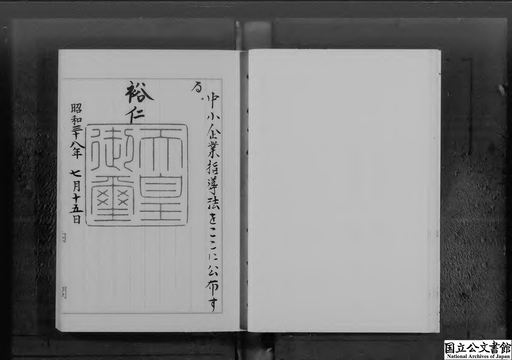 中小企業指導法をここに公布す
る
裕仁
天皇
御璽
昭和三十八年 七月十五日
国立公文書館
National Archives of Japan